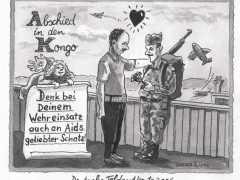 Abschied
in den
Kongo
Denk bei
Deinem
Wehreinsatz
auch an Aids,
geliebter Schatz!